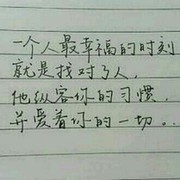 一个人最幸福的时刻
就是找对了人，
他纵容你的习惯，
并爱着你的一切。。